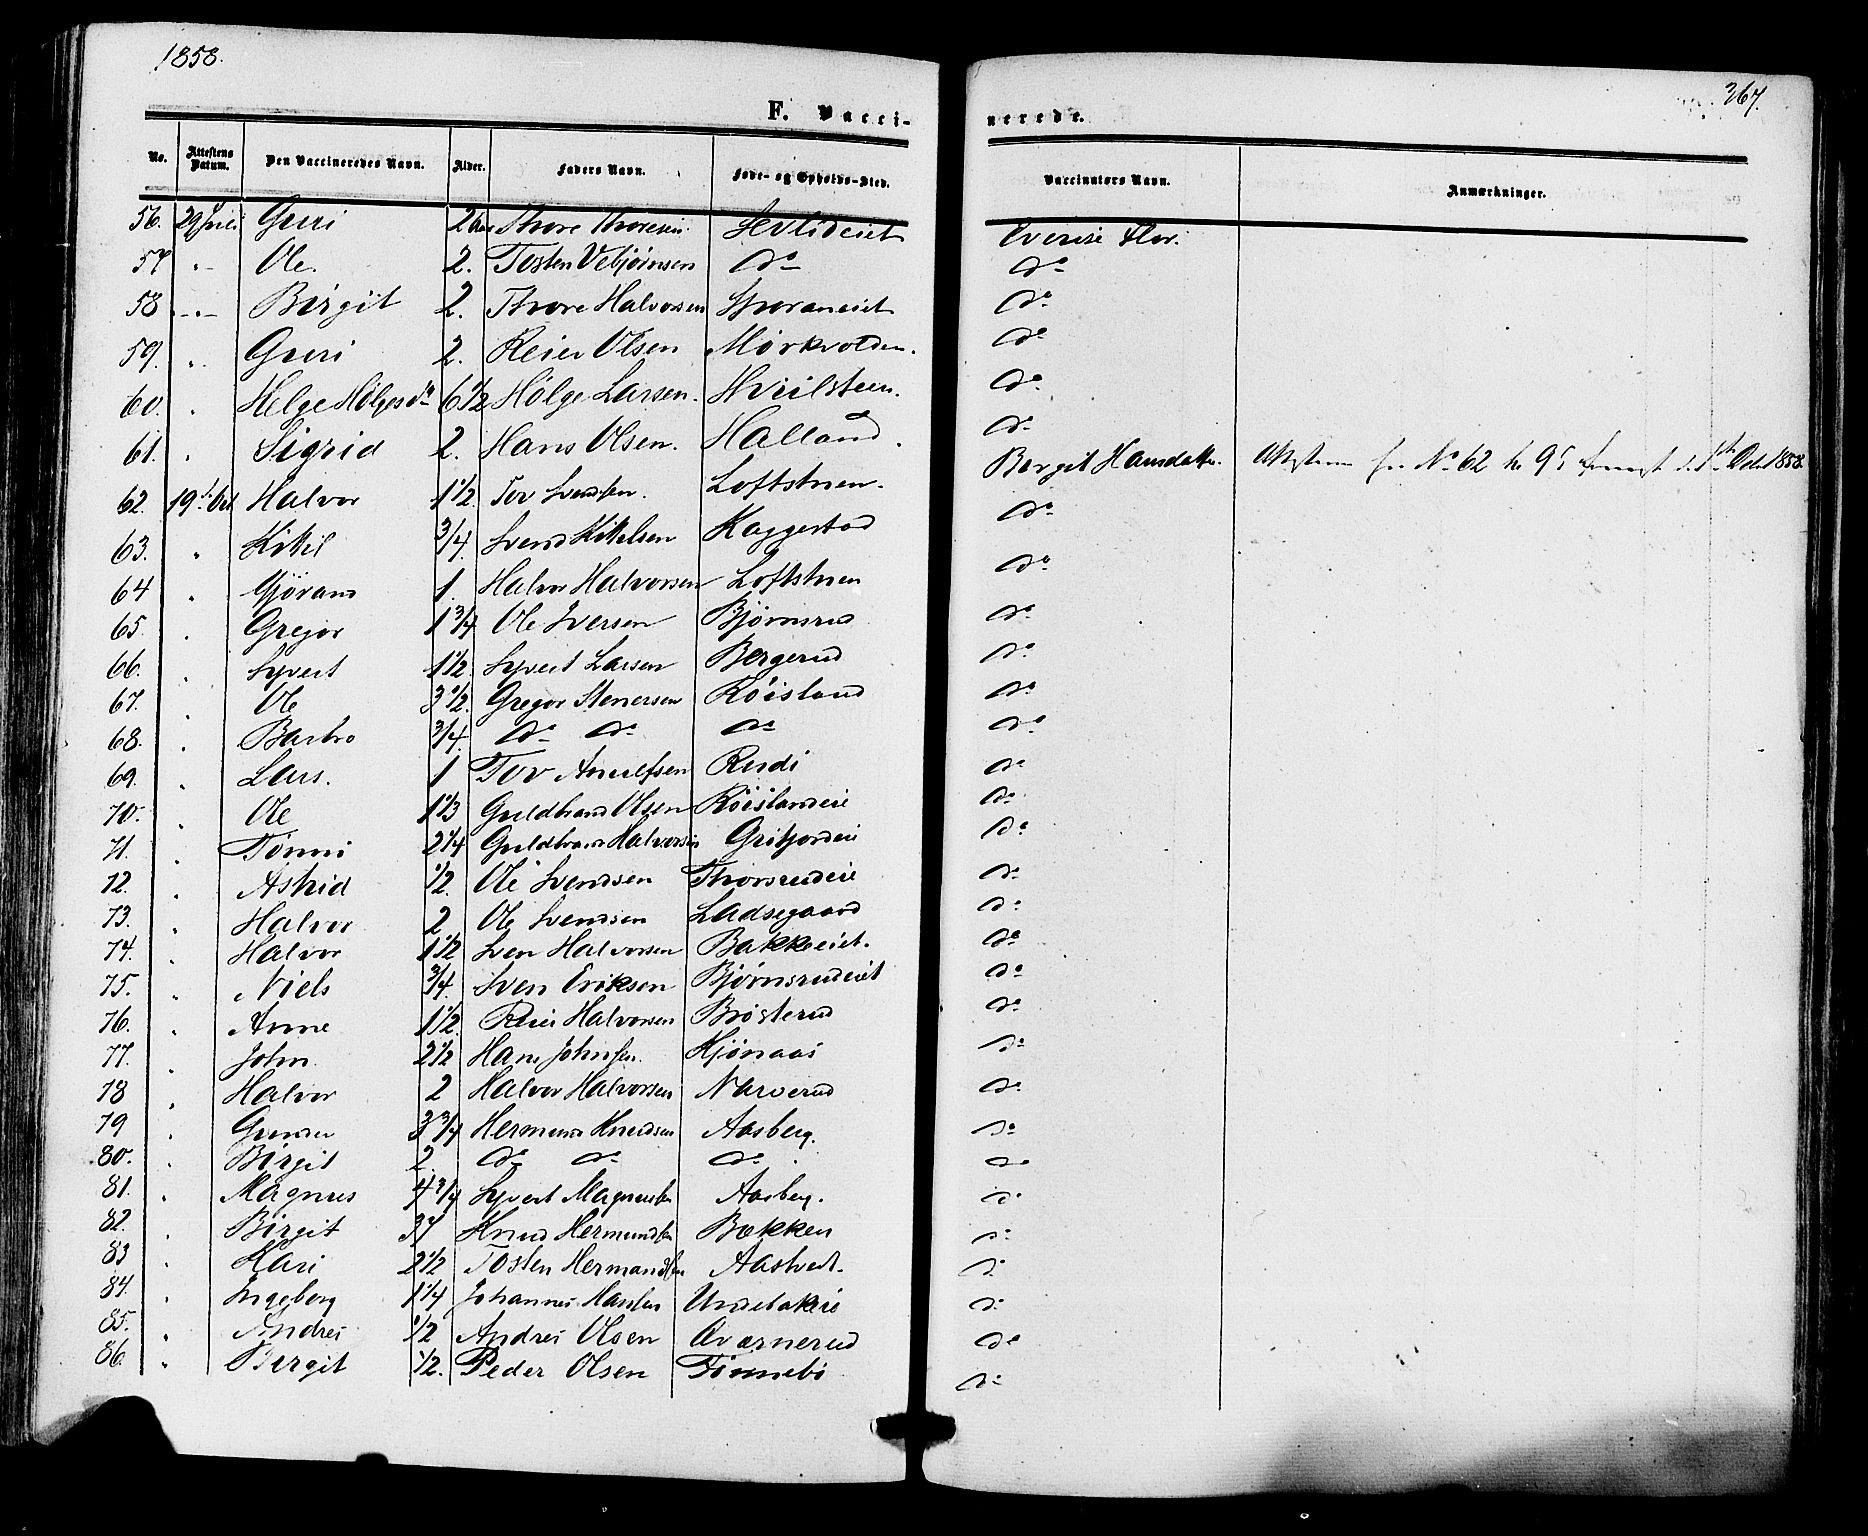 1858.
367.
F. Vacci-
nerede.
No. Attestens Datum. Den Vaccineredes Navn. Alder. Faders Navn. Føde- og Opholds-Sted. Vaccinators Navn. Anmærkninger.
56. 29 Guri 2 Thore Thoresen
57 " Ole. 2. Tosten Vebjørnsen do do
58 " Birgit 2. Thore Halvorsen do
59. " Guri 2. Reier Olsen Mørkvolden. do
60. " Helge Helgesdr 6 1/2 Hølge Larsen. Hviilsteen. do
61. " Sigrid 2. Hans Olsen. Halland. do
62. 19 Halvor 1 1/2 Tov Svendsen. Loftstuen. Bergit Hansdatter. No 62 1858
63. " Kittil 3/4 Svend Kittelsen Kaggestad do
64 " Gjøran 1. Halvor Halvorsen Loftstuen do
65. " Gregor 1 3/4 Ole Iversen Bjørnsrud do
66. " Syvert 1 1/2 Syvert Larsen Bergerud do
67. " Ole 3 1/2 Gregor Stenersen Røisland do
68. " Barbro 3/4 do do do do
69. " Lars. 1 Tov Rudi do
70. " Ole 1 1/3 Guldbrand Olsen Røislandeie do
71. " Tønni 2 1/4 Guldbrand Halvorsen Gritjordeie do
72. " Astrid 1/2 Ole Svendsen Thorsrudeie do
73. " Halvor 2 Ole Svendsen Ladsegaard do
74. " Halvor 1 1/2 Sven Halvorsen Bakkeeiet. do
75. " Niels 3/4 Sven Eriksen Bjørnsrudeiet do
76. " Anne 1 1/2 Reier Halvorsen Brøsterud do
77. " John 2 1/2 Hans Johnsen. Hjønaas do
78 " Halvor 2 Halvor Halvorsen Narverud do
79 " Gunder 3 3/4 Hermund Knudsen Aasberg. do
80. " Birgit 2 do do do do
81. " Magnus 4 3/4 Syvert Magnussen Aasberg. do
82. " Birgit Knud Hermundsen Bækken do
83 " Kari 2 1/2 Tosten Hermandsen Aastvedt. do
84. " Ingeborg 1 1/4 Johannes Hansen Undebakeie do
85. " Andres 1/2 Andres Olsen Qværnerud do
86. " Birgit 1/2. Peder Olsen Tinnebø do